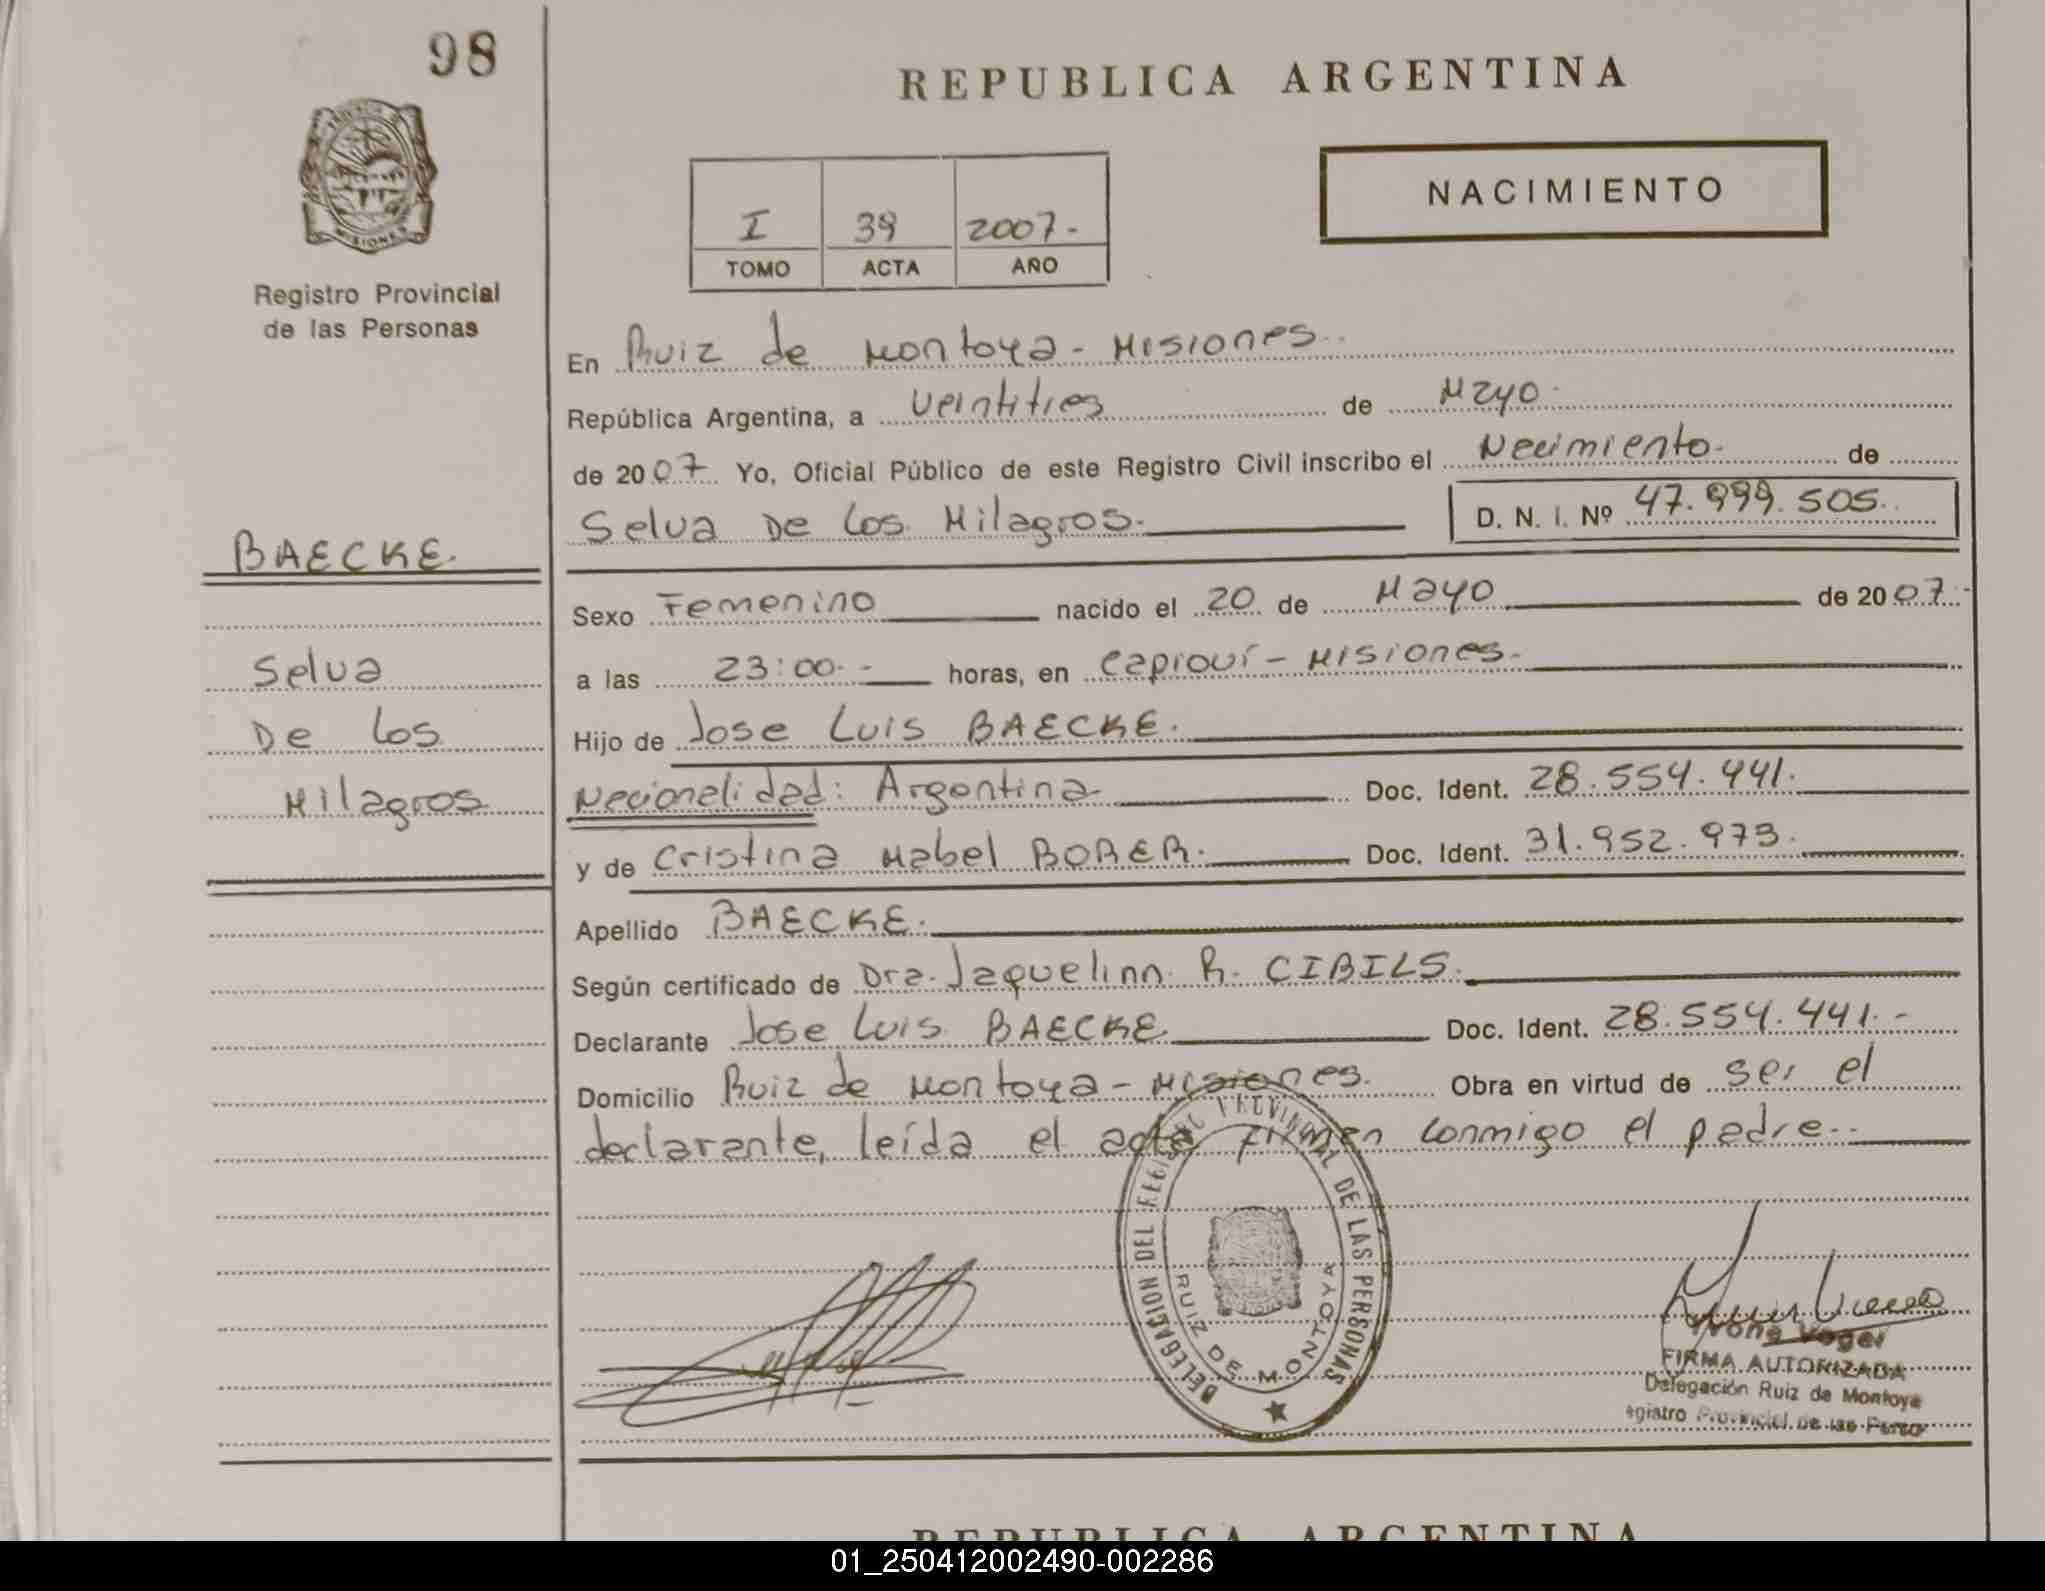 98
REPUBLICA ARGENTINA
MISIONES
Registro Provincial
de las Personas
NACIMIENTO
I 39 2007.-
TOMO ACTA AÑO
En Ruiz de Montoya - Misiones.
República Argentina, a Veintitres de Mayo.
de 2007 Yo, Oficial Público de este Registro Civil inscribo el Nacimiento. de
Selva De Los Milagros. D. N. I. Nº 47.999.505.
BAECKE.
Selva
De Los
Milagros
Sexo Femenino nacido el 20 de Mayo de 2007.-
a las 23:00.- horas, en Capioví - Misiones.
Hijo de Jose Luis BAECKE.
Nacionalidad: Argentina Doc. Ident. 28.554.441.
y de Cristina Mabel BOBER. Doc. Ident. 31.952.973.
Apellido BAECKE.
Según certificado de Dra. Jaquelinn. R. CIBILS.
Declarante Jose Luis BAECKE Doc. Ident. 28.554.441.-
Domicilio Ruiz de Montoya - Misiones. Obra en virtud de ser el
declarante, leída el acta firman conmigo el padre.
DELEGACION DEL REGISTRO PROVINCIAL DE LAS PERSONAS
RUIZ DE MONTOYA
FIRMA AUTORIZADA
Delegación Ruiz de Montoya
egistro Provincial de las Perso
REPUBLICA ARGENTINA
01_250412002490-002286